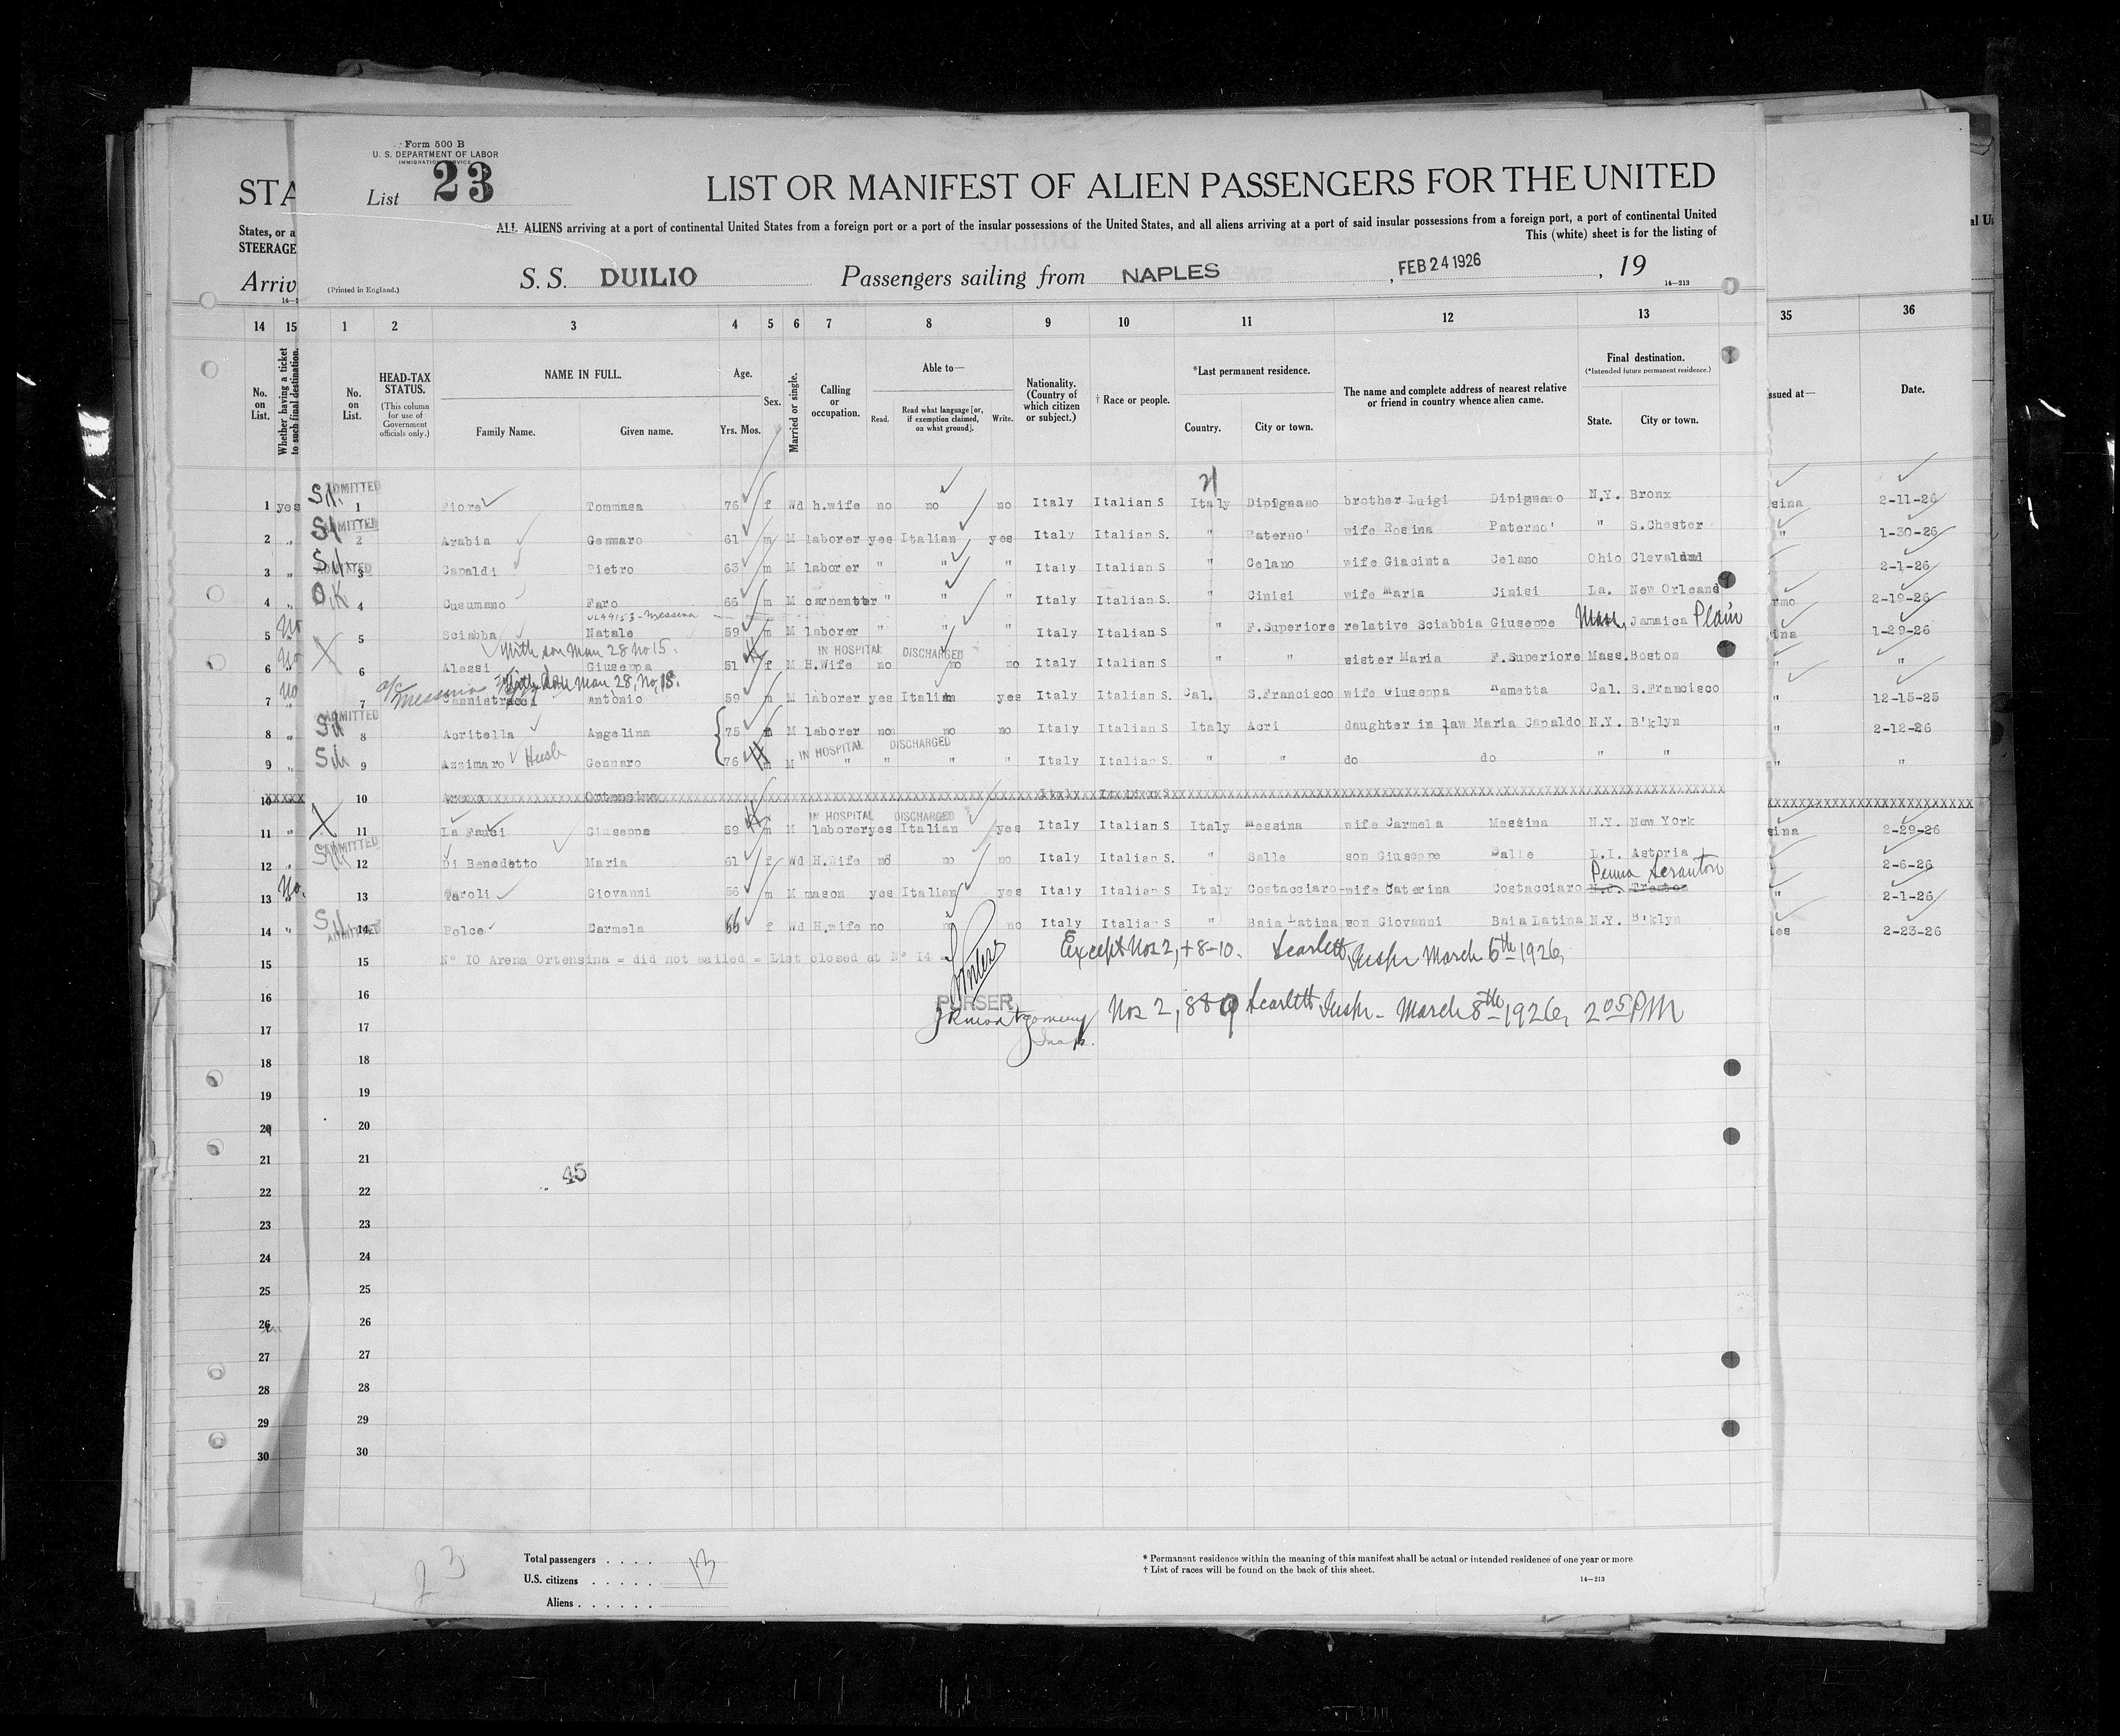 Form 500 B
U. S. DEPARTMENT OF LABOR
IMMIGRATION SERVICE
List 23
STA
LIST OR MANIFEST OF ALIEN PASSENGERS FOR THE UNITED
States, or a
ALL ALIENS arriving at a port of continental United States from a foreign port or a port of the insular possessions of the United States, and all aliens arriving at a port of said insular possessions from a foreign port, a port of continental United
STEERAGE
This (white) sheet is for the listing of
Arriv
(Printed in England.)
S. S. DUILIO Passengers sailing from NAPLES, FEB 24 1926, 19
14—213
14 15 1 2 3 4 5 6 7 8 9 10 11 12 13 35 36
No. on List.
Whether having a ticket to such final destination.
No. on List.
HEAD-TAX STATUS.
(This column for use of Government officials only.)
NAME IN FULL.
Family Name. Given name.
Age.
Yrs. Mos.
Sex.
Married or single.
Calling or occupation.
Able to—
Read. Read what language [or, if exemption claimed, on what ground]. Write.
Nationality. (Country of which citizen or subject.)
† Race or people.
*Last permanent residence.
Country. City or town.
The name and complete address of nearest relative or friend in country whence alien came.
Final destination.
(*Intended future permanent residence.)
State. City or town.
ssued at—
Date.
1 yes ADMITTED 1 Fiore Tommasa 76 f Wd h.wife no no no Italy Italian S Italy Dipignano brother Luigi Dipignano N.Y. Bronx sina 2-11-26
2 " ADMITTED 2 Arabia Gennaro 61 m M laborer yes Italian yes Italy Italian S. " Paterno' wife Rosina Paterno' " S.Chester " 1-30-26
3 " ADMITTED 3 Capaldi Pietro 63 m M laborer " " " Italy Italian S " Celano wife Giacinta Celano Ohio Cleveland 2-1-26
4 " OK 4 Cusumano Faro 66 m M carpenter " " " Italy Italian S. " Cinisi wife Maria Cinisi La. New Orleans rmo 2-19-26
5 No 5 Sciabba Natale 59 m M laborer " " " Italy Italian S " F.Superiore relative Sciabbia Giuseppe Mass. Jamaica Plain ina 1-29-26
With son Man 28 No 15. IN HOSPITAL DISCHARGED
6 No X 6 Alessi Giuseppa 51 f M H.Wife no no no Italy Italian S " " sister Maria F.Superiore Mass. Boston " "
7 No 7 Cannistracci Antonio 59 m M laborer yes Italian yes Italy Italian S. Cal. S.Francisco wife Giuseppa Rametta Cal. S.Francisco " 12-15-25
8 " ADMITTED 8 Acritella Angelina 75 m M laborer no no no Italy Italian S Italy Acri daughter in law Maria Capaldo N.Y. B'klyn " 2-12-26
IN HOSPITAL DISCHARGED
9 " 9 Azzimaro Husb Gennaro 76 m M " " " " Italy Italian S. " " do do " " " "
10 10 Arena Ortensina Italy Italian S
IN HOSPITAL DISCHARGED
11 " X 11 La Fauci Giuseppe 59 m M laborer yes Italian yes Italy Italian S Italy Messina wife Carmela Messina N.Y. New York sina 2-29-26
12 " ADMITTED 12 Di Benedetto Maria 61 f Wd H.Wife no no no Italy Italian S. " Salle son Giuseppe Salle L.I. Astoria 2-6-26
Penna Scranton
13 No. 13 Taroli Giovanni 56 m M mason yes Italian yes Italy Italian S Italy Costacciaro wife Caterina Costacciaro N.J. Trenton " 2-1-26
14 " ADMITTED 14 Polce Carmela 66 f Wd H.wife no no Italy Italian S " Baia Latina son Giovanni Baia Latina N.Y. B'klyn les 2-23-26
15 15 N° 10 Arena Ortensina = did not sailed = List closed at N° 14 Except Nos 2, + 8-10. Scarlett Inspr March 6th 1926,
16 PURSER Nos 2, 8 & 9 Scarlett Inspr - March 8th 1926, 2 05 PM
17 17
18 18
19 19
20 20
21 21
45
22 22
23 23
24 24
25 25
26 26
27 27
28 28
29 29
30 30
23
Total passengers . . . . 13
U.S. citizens . . . . . .
Aliens . . . . . .
* Permanent residence within the meaning of this manifest shall be actual or intended residence of one year or more
† List of races will be found on the back of this sheet.
14—213